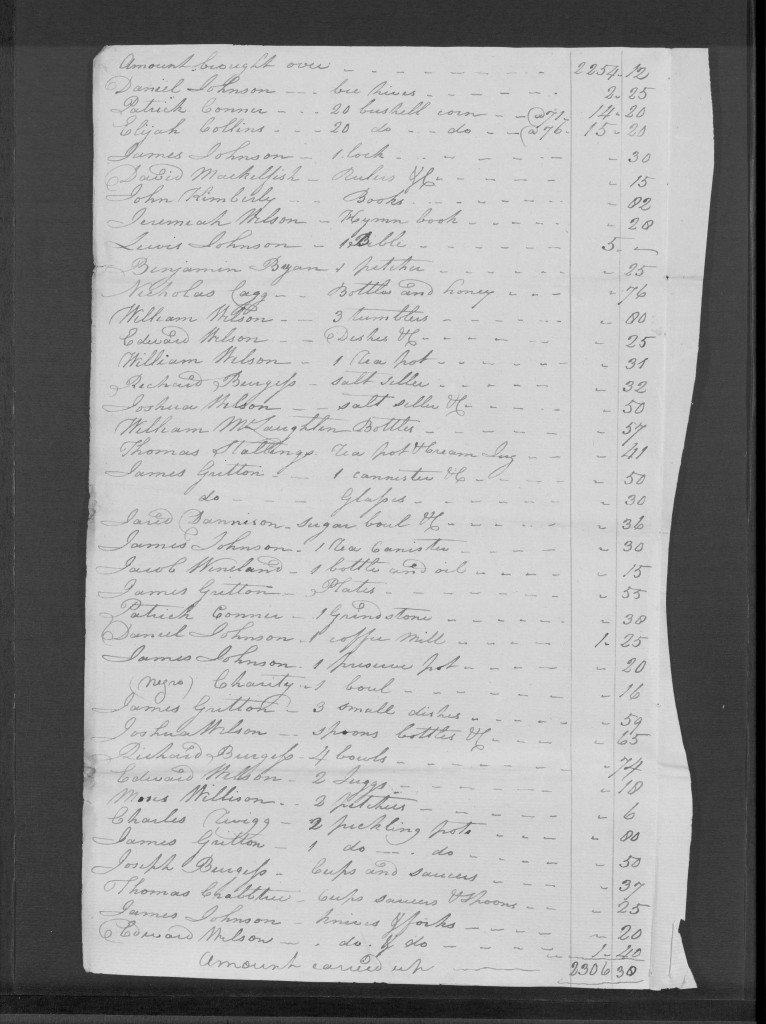 Amount brought over - - - - - - - - 2254-12
Daniel Johnson --- bee hives - - - - - - 2-25
Patrick Conner - - - 20 bushell corn - - @71- 14-20
Elijah Collins - - - 20 do - - do - - @76- 15-20
James Johnson - 1 lock - - - - - - - - 30
David - Rulers &C - - - - - - - 15
John Kimberly - - Books - - - - - - - 82
Jeremeah Wilson - Hymn book - - - - - 28
Lewis Johnson - 1 Bible - - - - - - 5 - -
Benjamin Bean 1 petcher - - - - - - - 25
Nicholas Cagg - - Bottles and honey - - - - 76
William Wilson - - 3 tumblers - - - - - - 80
Edward Wilson - Dishes &C - - - - - - 25
William Wilson - - 1 Tea pot - - - - - - 31
Richard Burgess - salt seller - - - - - - 32
Joshua Wilson - - salt seller &C - - - - - 50
William McLaughlen Bottles - - - - - - 57
Thomas Stallings. Tea pot & Cream Jug - - - 41
James Gritton - - 1 cannister &C - - - - - 50
do - - - - Glasses - - - - - - - 30
Jared Dannison - sugar boul &C - - - - - 36
James Johnson - 1 Tea Canister - - - - - 30
Jacob Wineland - 1 bottle and oil - - - - - 15
James Gritton - Plates - - - - - - - 55
Patrick Conner - 1 Grindstone - - - - - - 38
Daniel Johnson - 1 coffee Mill - - - - - 1-25
James Johnson. 1 preserve pot - - - - - 20
(Negro) Charity - 1 boul - - - - - - - 16
James Gritton - 3 small dishes - - - - - 59
Joshua Wilson - spoons bottles &C - - - - 65
Richard Burgess - 4 bowls - - - - - - 74
Edward Wilson - 2 Juggs - - - - - - - 18
Moses Willison - - 2 petchers - - - - - - 6
Charles Twigg - 2 pickling pots - - - - - 80
James Gritton - 1 do - - do - - - - - 50
Joseph Burgess - Cups and saucers - - - - 37
Thomas Crabtree - Cups saucers & spoons - - - 25
James Johnson - knives & forks - - - - - 20
Edward Wilson - - do. & do - - - - - 1-40
Amount carried up - - 2306 38